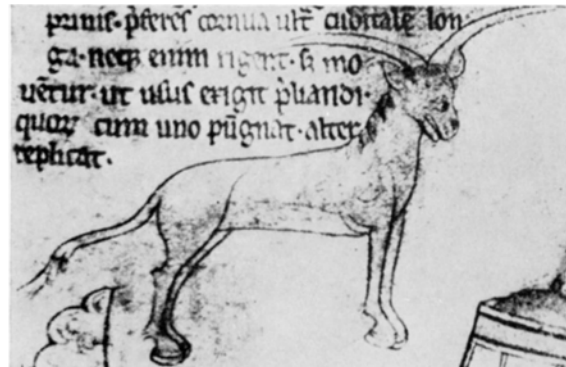 prinis· p̄ferēs cornua ult̄ cubitalē lon
ga· neqꝫ enim rigent· s; mo
uētur· ut usus exigit p̄liandi·
quoꝝ cum uno pūgnat· alter
replicat.